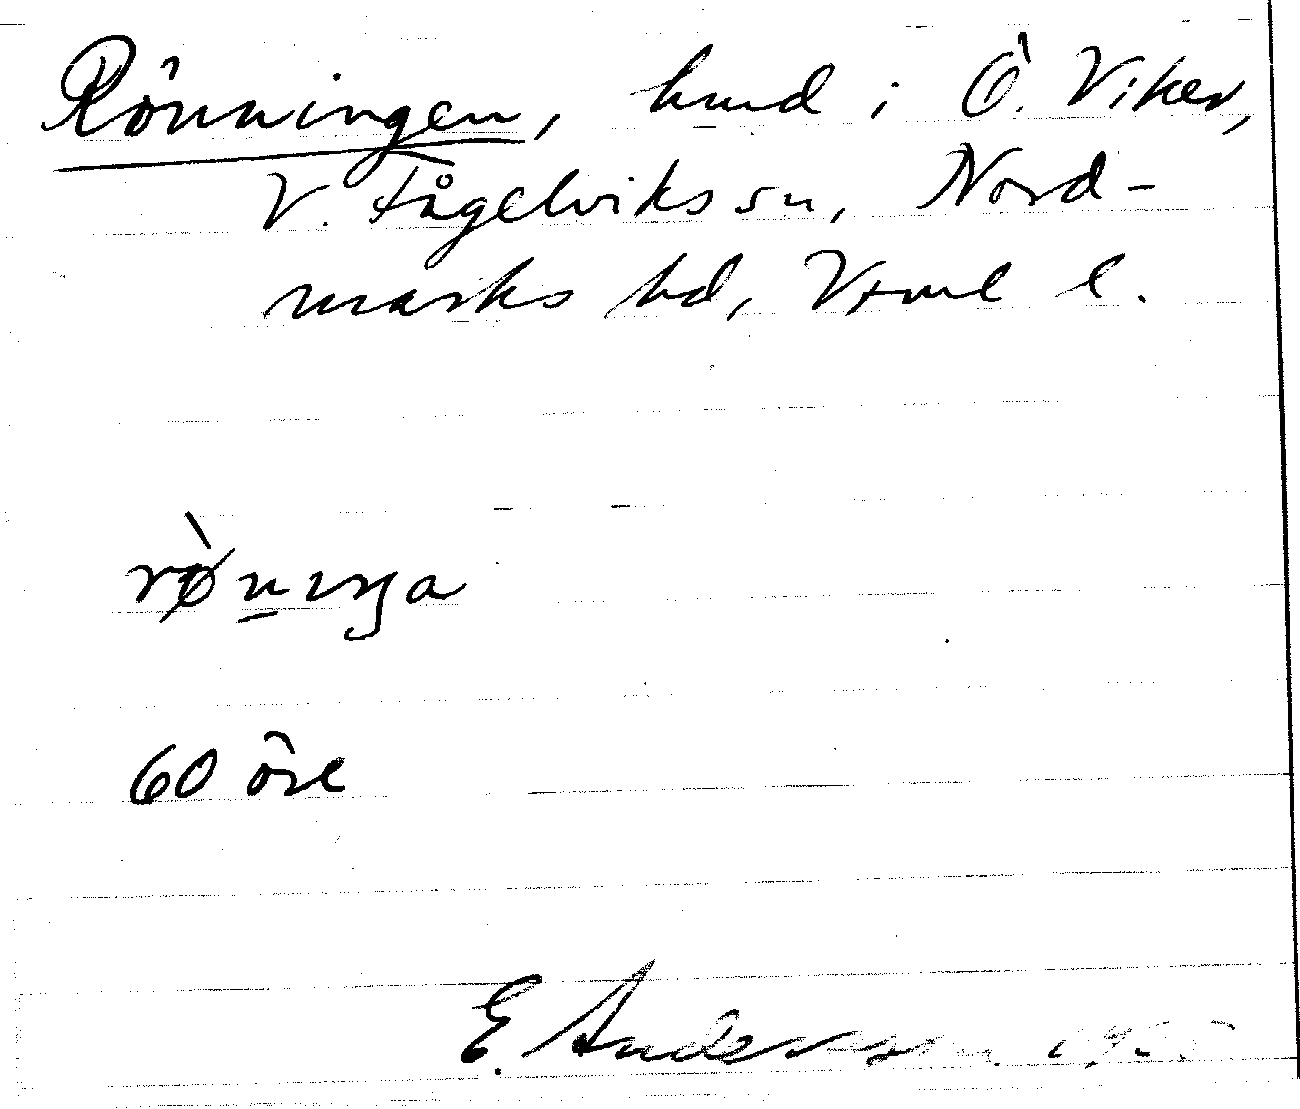 Rönningen, hmd i Ö. Viker,
V. Fågelviks sn, Nord-
marks hd, Vrml l.
rø̀n̲ıŋa
60 öre
E. Andersson 1955